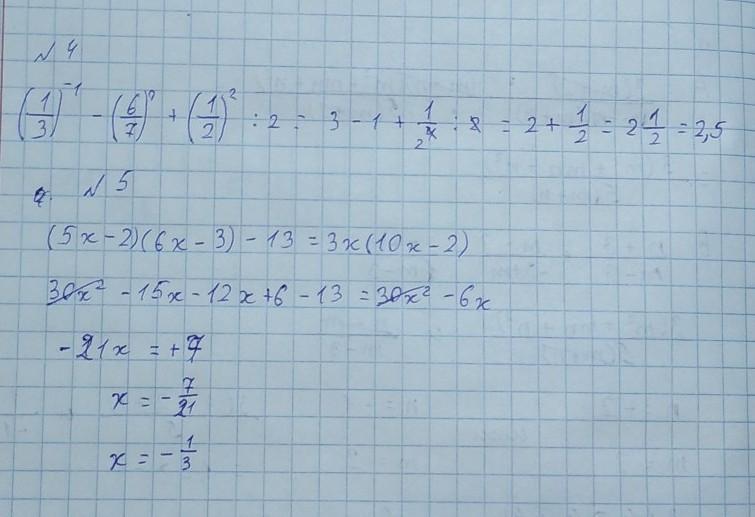 № 4
(1/3)⁻¹ - (6/7)⁰ + (1/2)² : 2 = 3 - 1 + 1/4 : 2 = 2 + 1/2 = 2 1/2 = 2,5
№ 5
(5x-2)(6x-3) - 13 = 3x(10x-2)
30x² - 15x - 12x + 6 - 13 = 30x² - 6x
-21x = +7
x = - 7/21
x = - 1/3